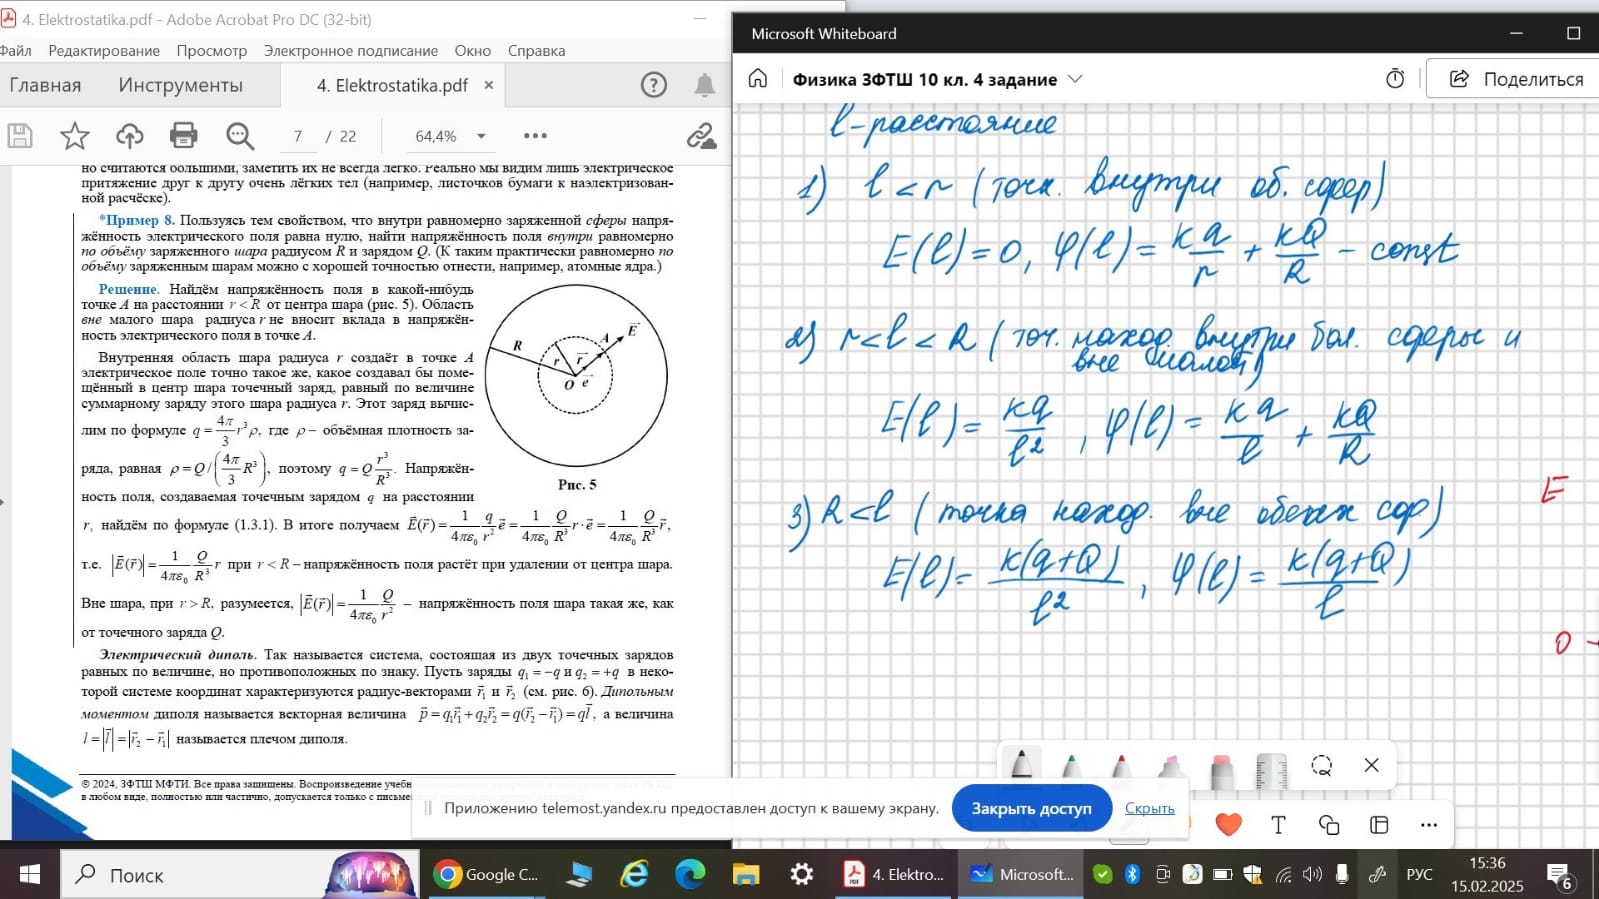 4. Elektrostatika.pdf - Adobe Acrobat Pro DC (32-bit)
Файл Редактирование Просмотр Электронное подписание Окно Справка
Главная Инструменты 4. Elektrostatika.pdf ×
7 / 22 64,4%
но считаются большими, заметить их не всегда легко. Реально мы видим лишь электрическое
притяжение друг к другу очень лёгких тел (например, листочков бумаги к наэлектризован-
ной расчёске).
*Пример 8. Пользуясь тем свойством, что внутри равномерно заряженной сферы напря-
жённость электрического поля равна нулю, найти напряжённость поля внутри равномерно
по объёму заряженного шара радиусом R и зарядом Q. (К таким практически равномерно по
объёму заряженным шарам можно с хорошей точностью отнести, например, атомные ядра.)
Решение. Найдём напряжённость поля в какой-нибудь
точке A на расстоянии r < R от центра шара (рис. 5). Область
вне малого шара радиуса r не вносит вклада в напряжён-
ность электрического поля в точке A.
Внутренняя область шара радиуса r создаёт в точке A
электрическое поле точно такое же, какое создавал бы поме-
щённый в центр шара точечный заряд, равный по величине
суммарному заряду этого шара радиуса r. Этот заряд вычис-
лим по формуле q = 4π/3 r³ρ, где ρ – объёмная плотность за-
ряда, равная ρ = Q/(4π/3 R³), поэтому q = Q r³/R³. Напряжён-
ность поля, создаваемая точечным зарядом q на расстоянии
R r r⃗ A E⃗ O e⃗
Рис. 5
r, найдём по формуле (1.3.1). В итоге получаем E⃗(r⃗) = 1/4πε₀ q/r² e⃗ = 1/4πε₀ Q/R³ r·e⃗ = 1/4πε₀ Q/R³ r⃗,
т.е. |E⃗(r⃗)| = 1/4πε₀ Q/R³ r при r < R – напряжённость поля растёт при удалении от центра шара.
Вне шара, при r > R, разумеется, |E⃗(r⃗)| = 1/4πε₀ Q/r² – напряжённость поля шара такая же, как
от точечного заряда Q.
Электрический диполь. Так называется система, состоящая из двух точечных зарядов
равных по величине, но противоположных по знаку. Пусть заряды q₁ = −q и q₂ = +q в неко-
торой системе координат характеризуются радиус-векторами r⃗₁ и r⃗₂ (см. рис. 6). Дипольным
моментом диполя называется векторная величина p⃗ = q₁r⃗₁ + q₂r⃗₂ = q(r⃗₂ − r⃗₁) = ql⃗, а величина
l = |l⃗| = |r⃗₂ − r⃗₁| называется плечом диполя.
© 2024, ЗФТШ МФТИ. Все права защищены. Воспроизведение
в любом виде, полностью или частично, допускается только с
Microsoft Whiteboard
Физика ЗФТШ 10 кл. 4 задание
Поделиться
l - расстояние
1) l < r (точк. внутри об. сфер)
E(l) = 0, φ(l) = kq/r + kQ/R - const
2) r < l < R (точ. наход. внутри бол. сферы и
вне малой)
E(l) = kq/l², φ(l) = kq/l + kQ/R
3) R < l (точка наход. вне обеих сф)
E(l) = k(q+Q)/l², φ(l) = k(q+Q)/l
E
0
Приложению telemost.yandex.ru предоставлен доступ к вашему экрану. Закрыть доступ Скрыть
T
Поиск
Google C...
4. Elektro...
Microsoft...
РУС
15:36
15.02.2025
6